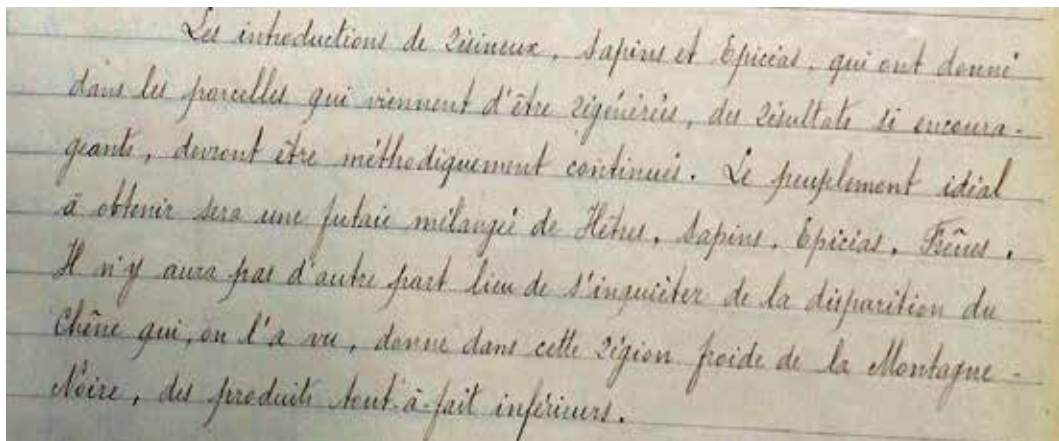 Les introductions de résineux, Sapins et Epicéas, qui ont donné
dans les parcelles qui viennent d'être régénérées, des résultats si encoura-
geants, devront être méthodiquement continués. Le peuplement idéal
à obtenir sera une futaie mélangée de Hêtres, Sapins, Epicéas, Frênes.
Il n'y aura pas d'autre part lieu de s'inquiéter de la disparition du
Chêne qui, on l'a vu, donne dans cette région froide de la Montagne-
Noire, des produits tout-à-fait inférieurs.